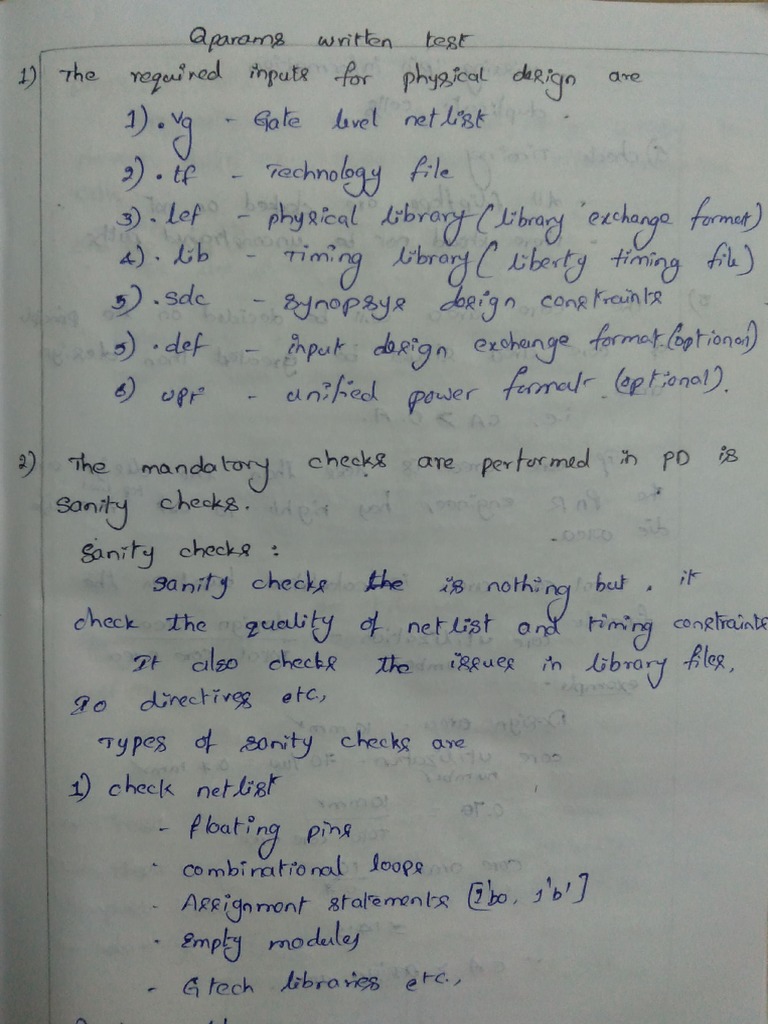 Qparams written test
1) The required inputs for physical design are
1) .vg - Gate level netlist
2) .tf - Technology file
3) .lef - physical library (library exchange format)
4) .lib - Timing library (liberty timing file)
5) .sdc - synopsys design constraints
5) .def - input design exchange format (optional)
6) upf - unified power format (optional).
2) The mandatory checks are performed in PD is
sanity checks.
Sanity checks :
sanity checks the is nothing but . it
check the quality of netlist and timing constraints
It also checks the issues in library files,
IO directives etc,
Types of sanity checks are
1) check netlist
- floating pins
- combinational loops
- Assignment statements [1'b0, 1'b1]
- Empty modules
- Gtech libraries etc.,